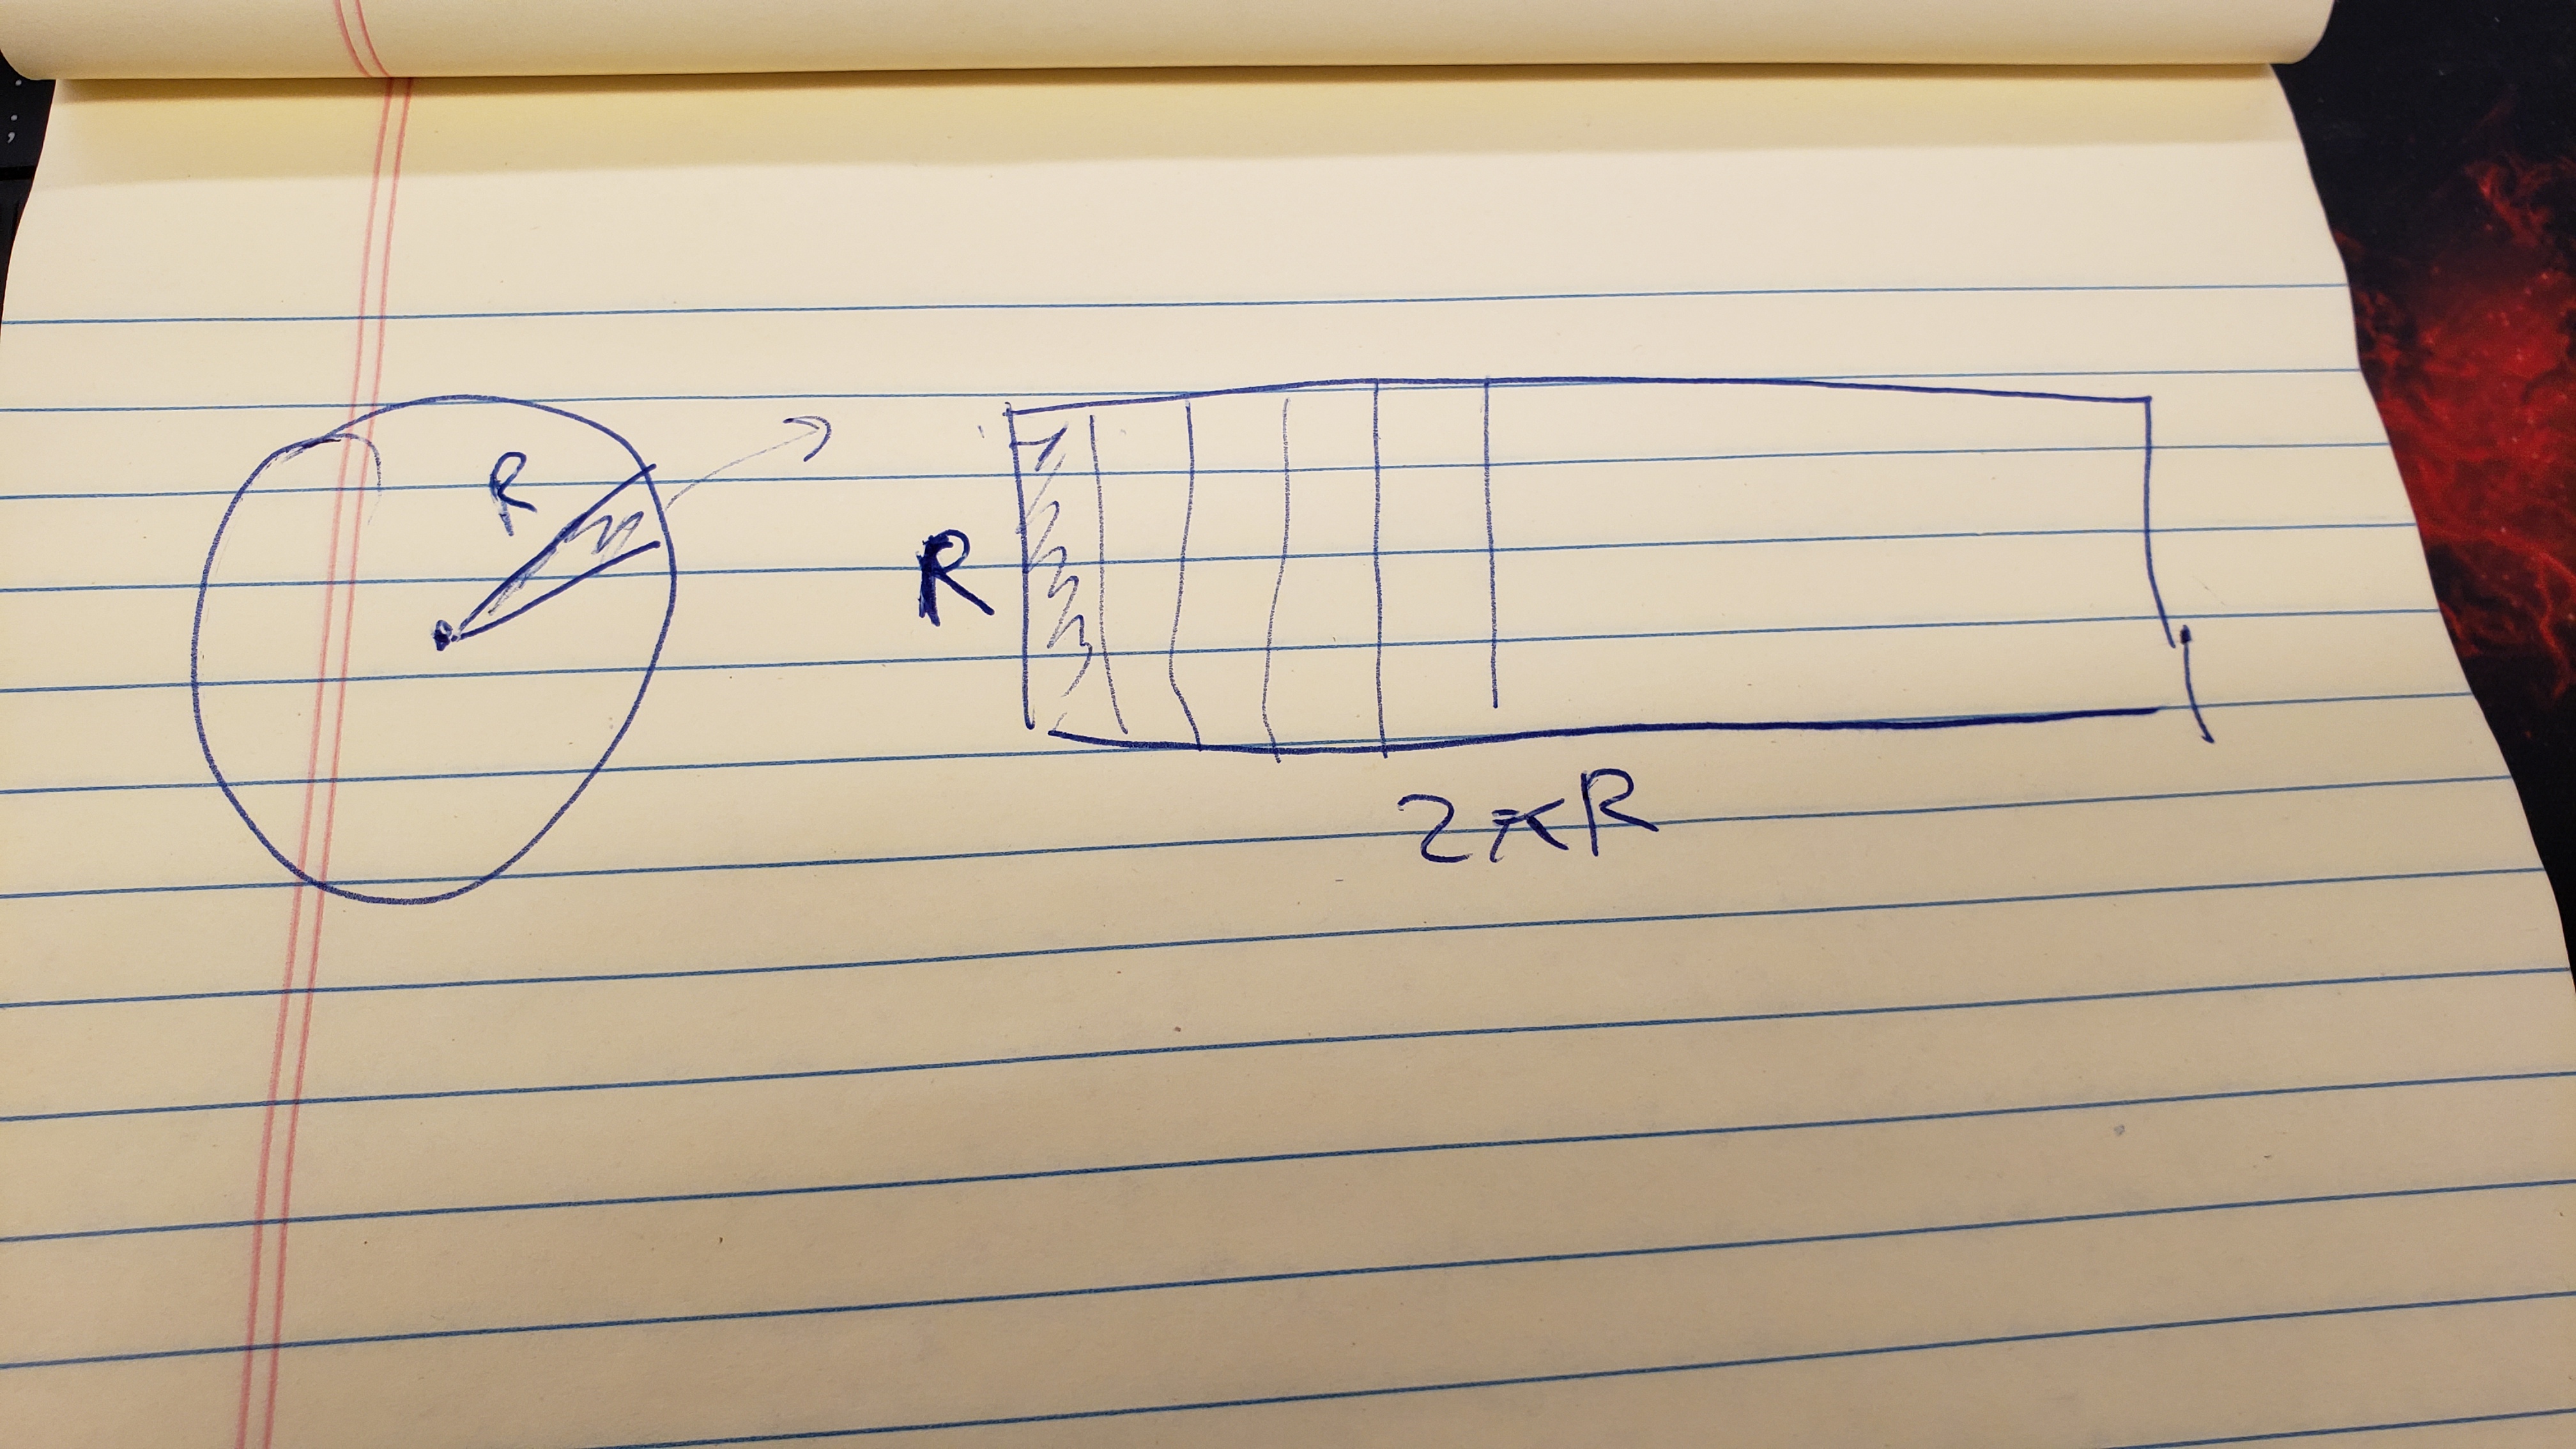 R
R
2πR